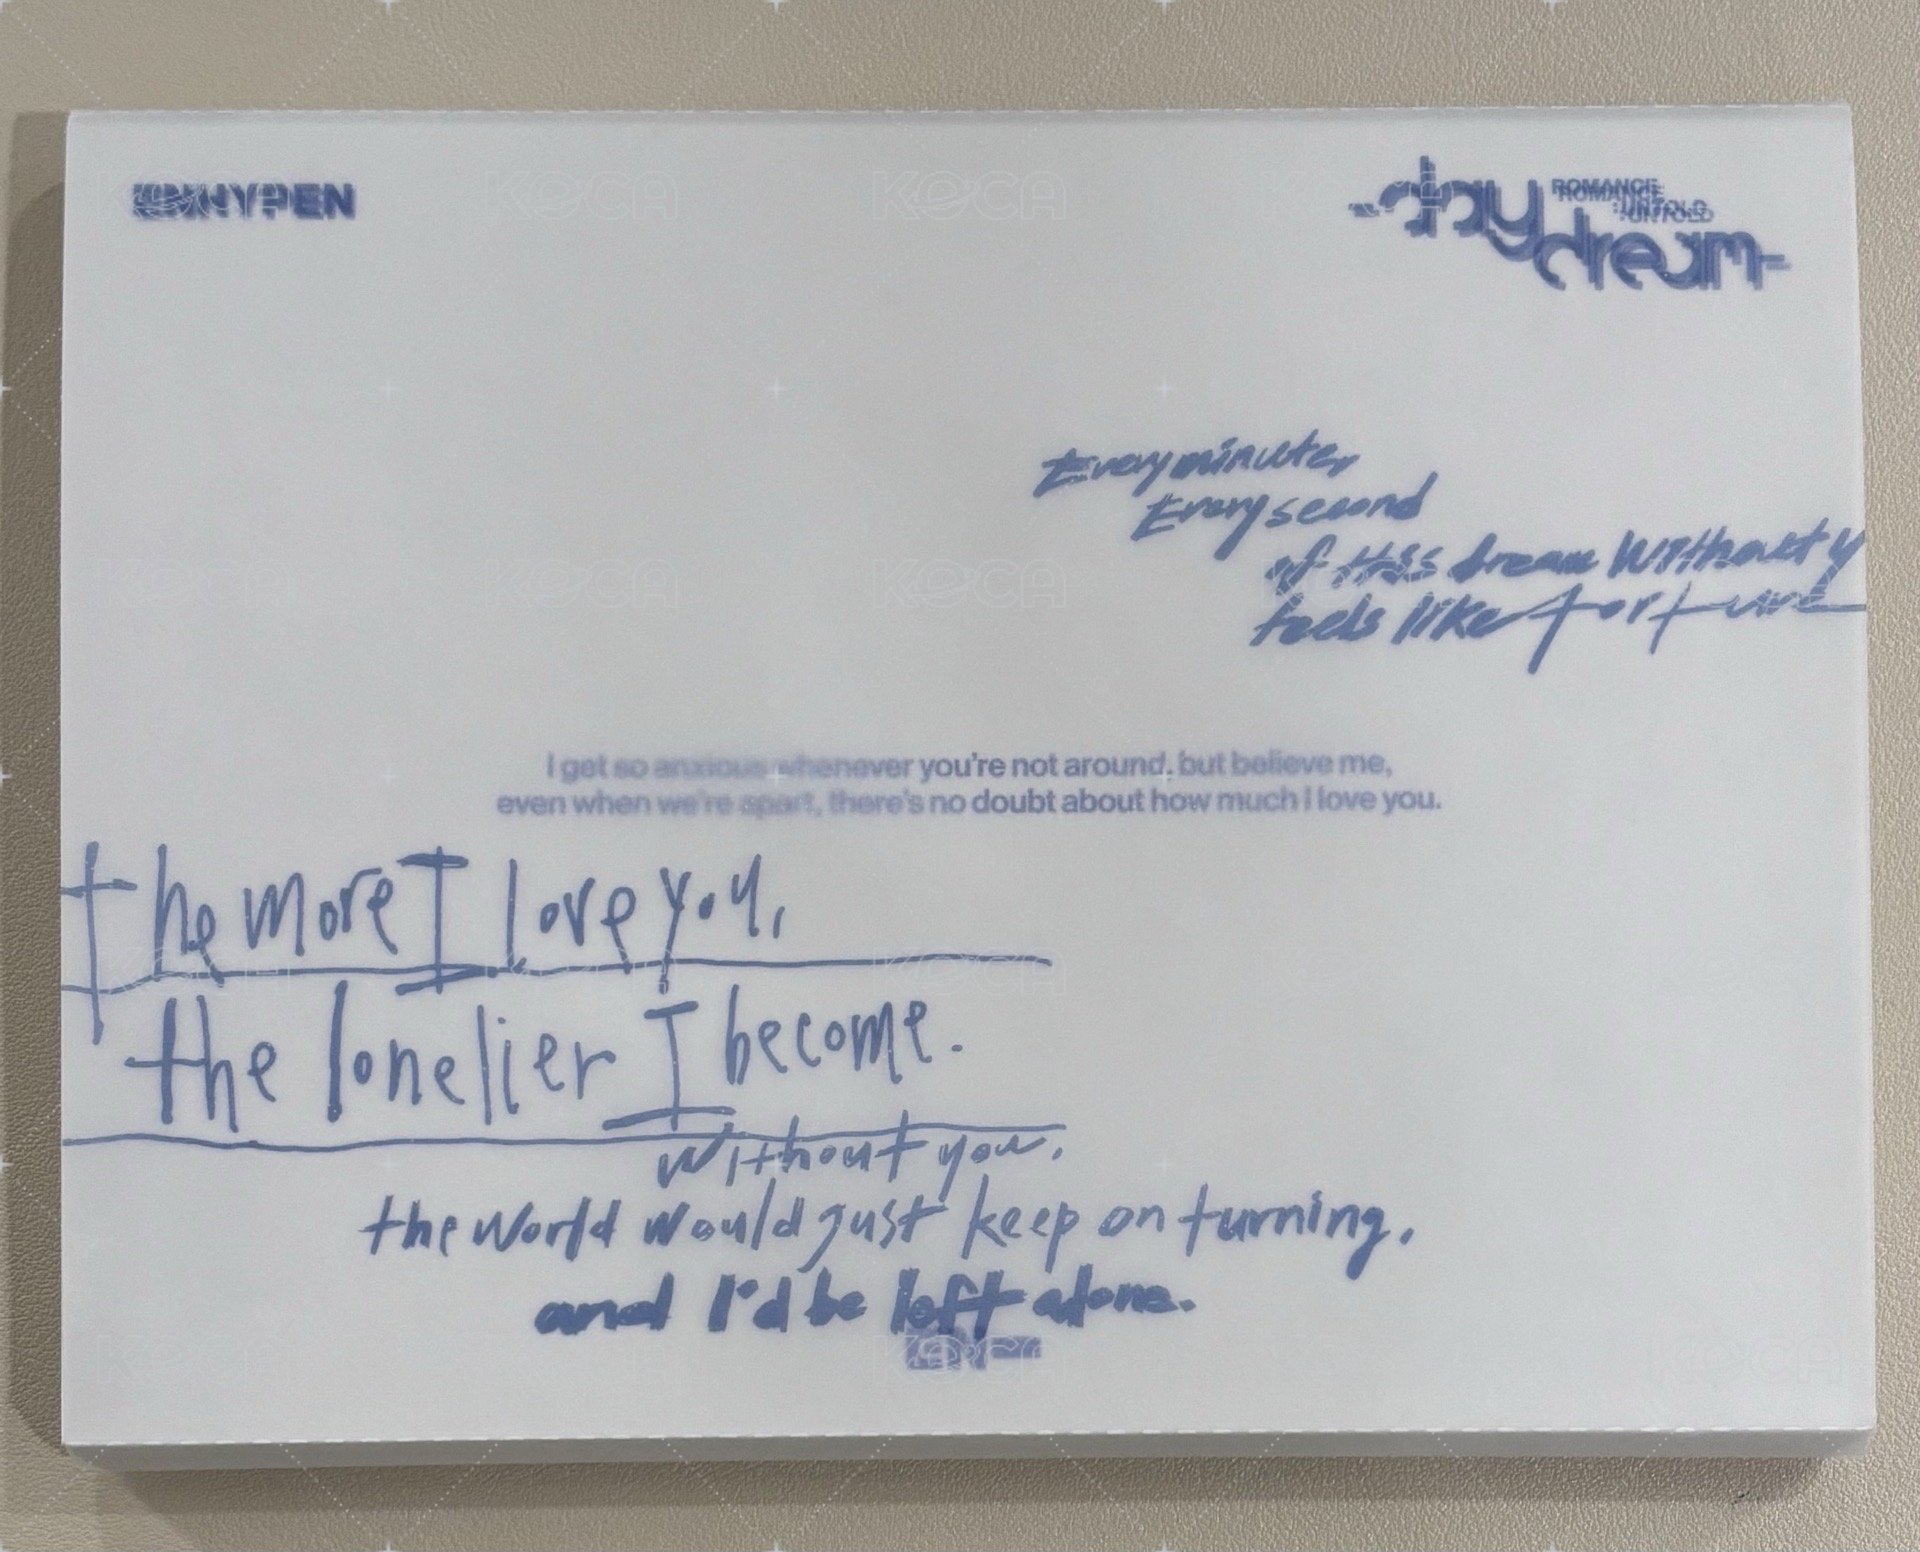 ENHYPEN
-daydream-
ROMANCE
: UNTOLD
Every minute,
Every second
of this dream without y
feels like torture
I get so anxious whenever you're not around. but believe me,
even when we're apart, there's no doubt about how much I love you.
the more I love you,
the lonelier I become.
without you,
the world would just keep on turning,
and I'd be left alone.
KOCA